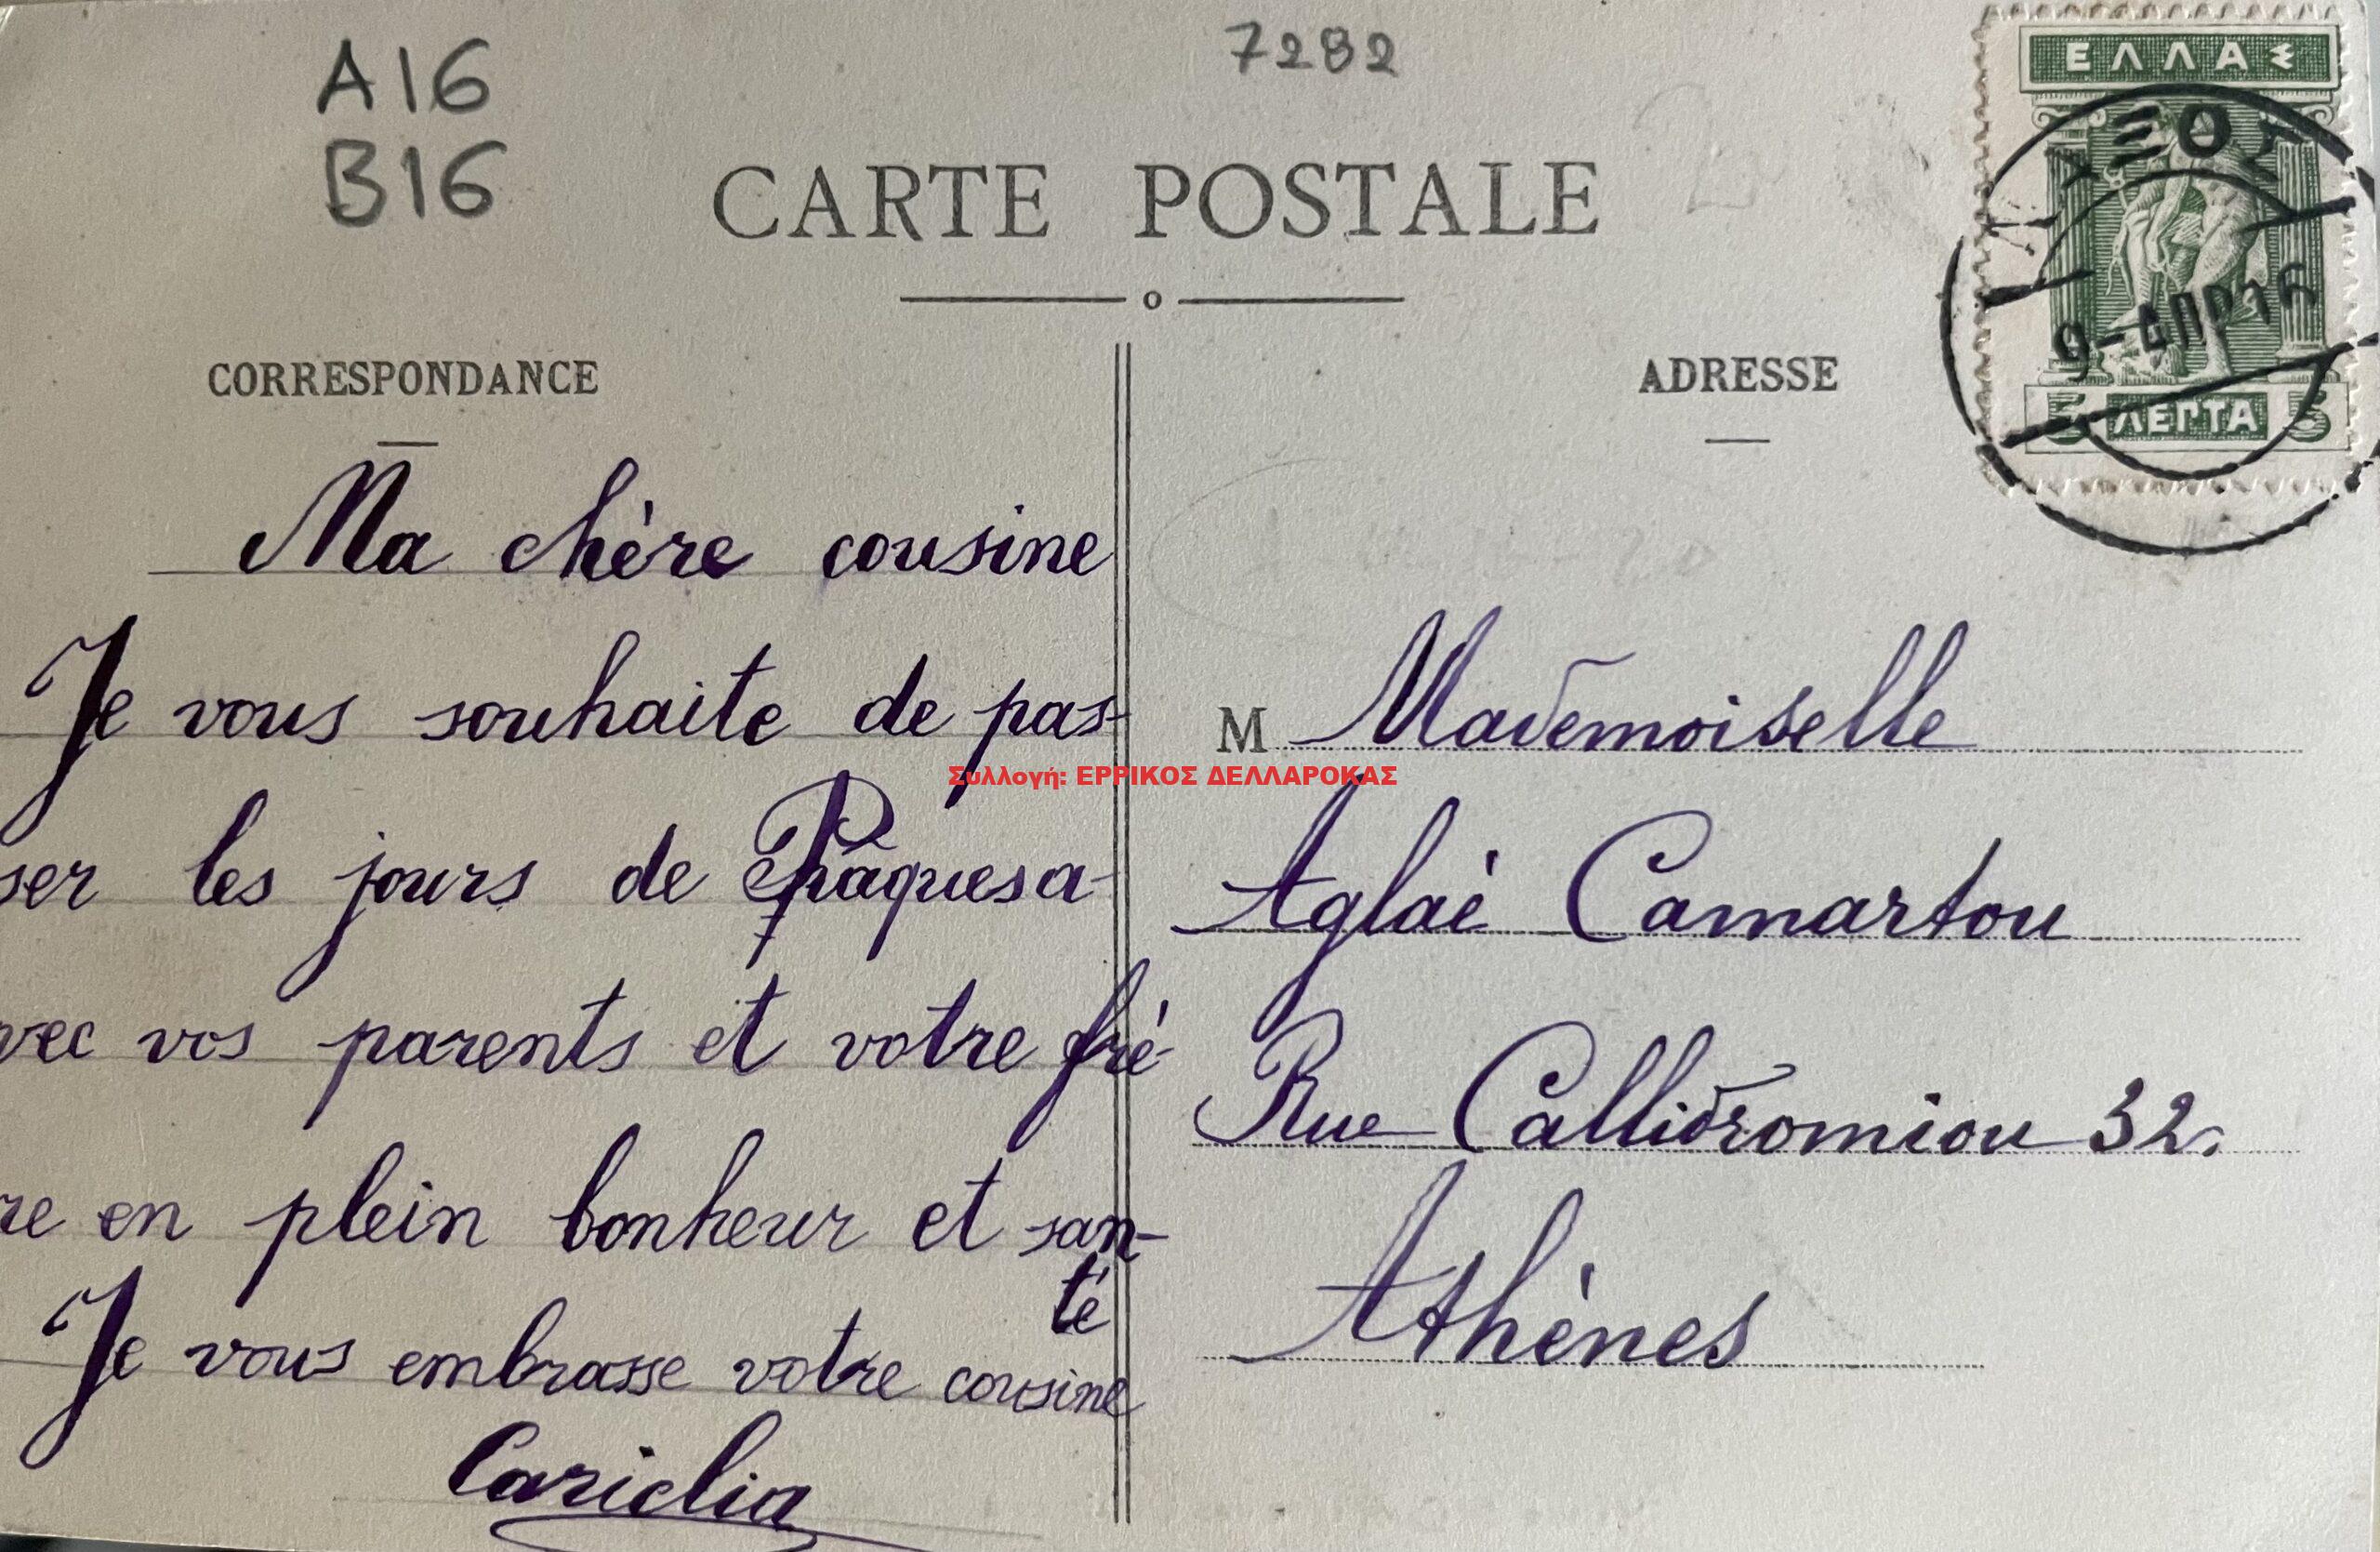 A16
B16
7282
CARTE POSTALE
CORRESPONDANCE
Ma chère cousine
Je vous souhaite de pas-
ser les jours de Pâques a-
vec vos parents et votre frè-
re en plein bonheur et san-
té
Je vous embrasse votre cousine
Cariclia
ADRESSE
M Mademoiselle
Aglaè Camartou
Rue Callidromiou 32.
Athènes
ΕΛΛΑΣ
ΝΑΞΟΣ
9-ΑΠΡ 16
5 ΛΕΠΤΑ 5
Συλλογή: ΕΡΡΙΚΟΣ ΔΕΛΛΑΡΟΚΑΣ